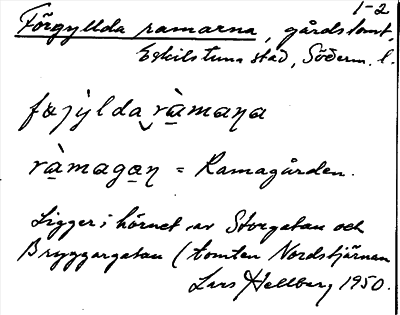 1-2
Förgyllda ramarna, gårdstomt,
Eskilstuna stad, Söderm. l.
fœjỳlda‿rà̱maɳa
rà̱maga̱ɳ = Ramagården.
Ligger i hörnet av Storgatan och
Bryggargatan (tomten Nordstjärnan
Lars Hellberg 1950.